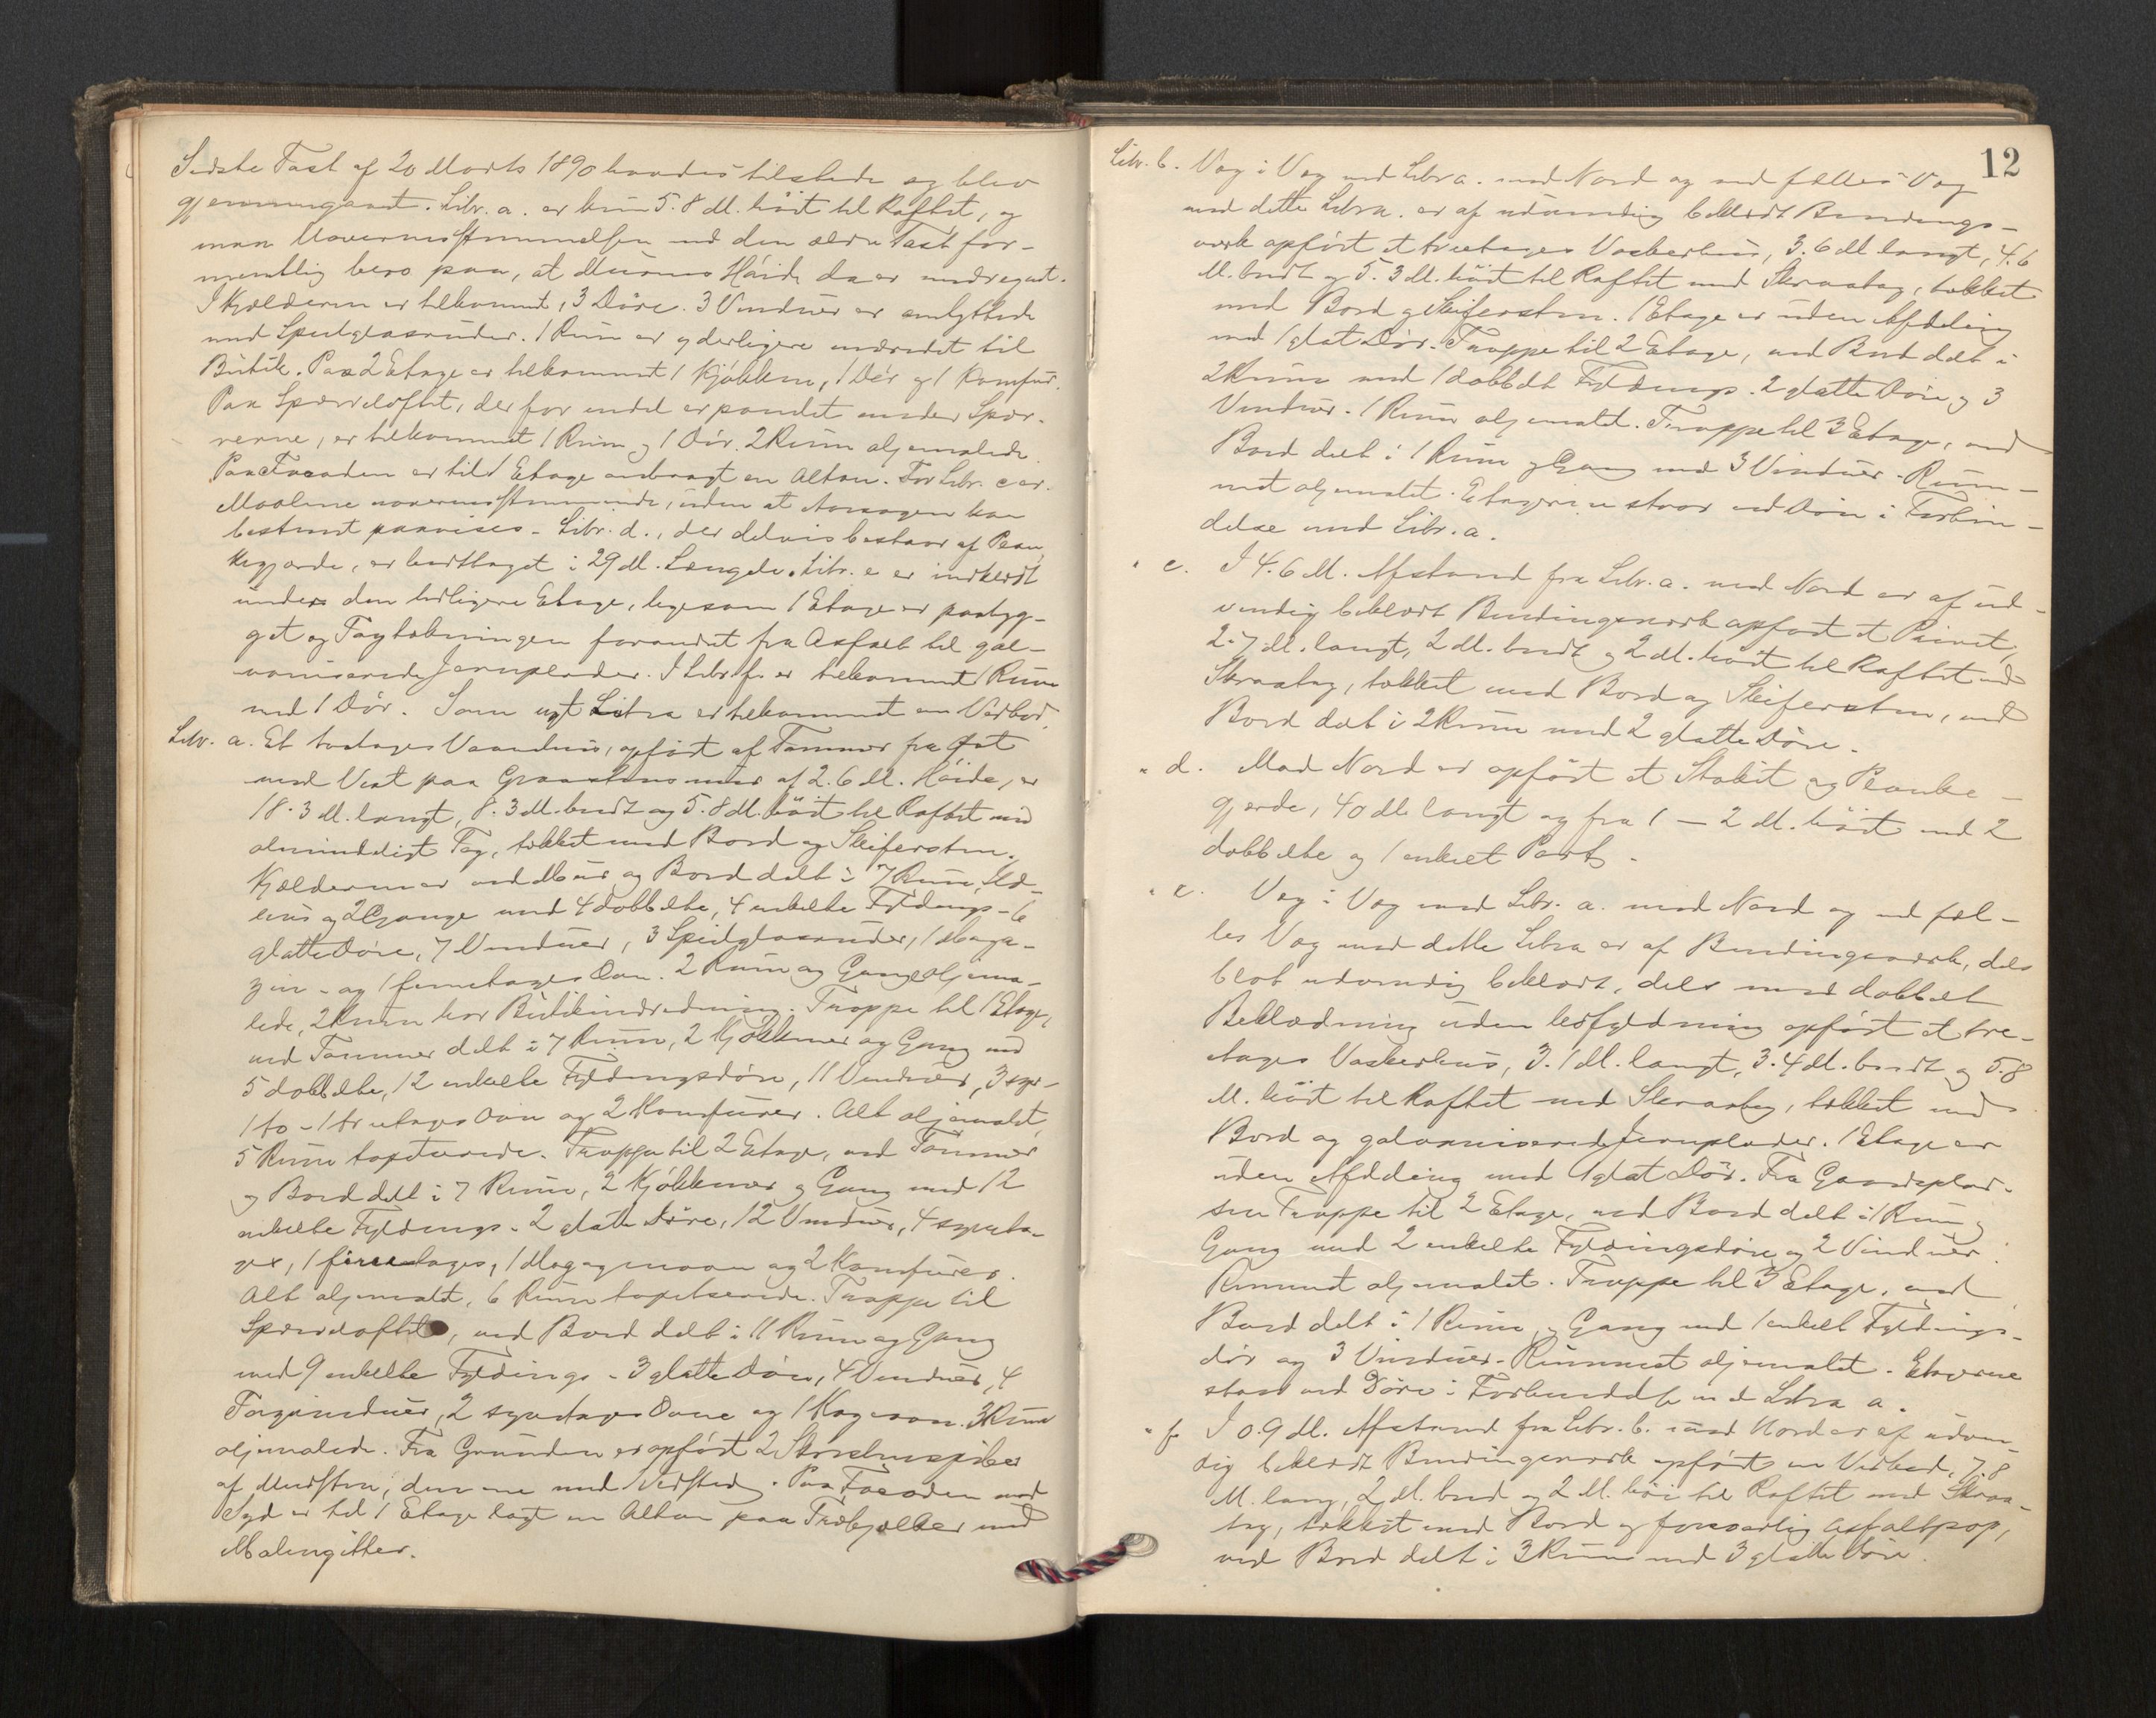 Sidste Taxt af 20 Marts 1890 havdes tilstede og blev
gjennemgaaet. Litr. a. er kun 5.8 M. höit til Raftet, og
maa Uoverensstemmelsen med den ældre Taxt for-
mentlig bero paa, at Murens Höide da er medregnet.
I Kjælderen er tilkommet, 3 Döre. 3 Vinduer er ombyttede
med Speilglasruder. 1 Rum er yderligere indredet til
Butik. Paa 2 Etage er tilkommet 1 Kjökken, 1 Dör og 1 Komfur.
Paa Sperreloftet, der for endel er panelet under Sper-
rerne, er tilkommet 1 Rum og 1 Dör. 2 Rum oljemalede.
Paa Facaden er til 1 Etage anbragt en Altan. For Litr. c er
Maalene uoverensstemmende, uden at Aarsagen kan
bestemt paavises. Litr. d., der delvis bestaar af Plan-
kegjærde, er borttaget i 29 M. Længde. Litr. e er indklædt
under den tidligere Etage, ligesom 1 Etage er paabyg-
get og Tagtækningen forandret fra Asfalt til gal-
vaniserede Jernplader. I Litr. f. er tilkommet 1 Rum
med 1 Dör. Som nyt Litra er tilkommet en Vedbod.
Litr. a. Et toetages Vaaningshus, opfört af Tömmer fra Öst
mod Vest paa Graastensmur af 2.6 M. Höide, er
18.3 M. langt, 8.3 M. bredt og 5.8 M. höit til Raftet med
almindeligt Tag, tækket med Bord og Skifersten.
Kjælderen er ved Mur og Bord delt i 7 Rum,
og 2 Gange med 4 dobbelte, 4 enkelte Fyldings- 6
glatte Döre, 7 Vinduer, 3 Speilglasruder, 1 Maga-
zin- og 1 femetages Ovn. 2 Rum og Gange oljema-
lede, 2 Rum har Butikindredning. Trappe til 1 Etage,
ved Tömmer delt i 7 Rum, 2 Kjökkener og Gang med
5 dobbelte, 12 enkelte Fyldingsdöre, 11 Vinduer, 3 syv-
1 to- 1 treetages Ovn og 2 Komfurer. Alt oljemalet,
5 Rum tapetserede. Trappe til 2 Etage, ved Tömmer
og Bord delt i 7 Rum, 2 Kjökkener og Gang med 12
enkelte Fyldings- 2 glatte Döre, 12 Vinduer, 4 syveta-
ges, 1 fireetages, 1 Magazinovn og 2 Komfurer.
Alt oljemalt, 6 Rum tapetserede. Trappe til
Sperreloftet, ved Bord delt i 11 Rum og Gang
med 9 enkelte Fyldings- 3 glatte Döre, 4 Vinduer, 4
Tagvinduer, 2 syvetages Ovne og 1 Kogeovn. 3 Rum
oljemalede. Fra Grunden er opfört 2 Skorstenspiber
af Mursten, den ene med Ildsted. Paa Facaden mod
Syd er til 1 Etage lagt en Altan paa Træbjælker med
Malmgitter.
12
Litr. b. Væg i Væg med Litra a. mod Nord og med fælles Væg
med dette Litra er af udvendig beklædt Bindings-
værk opfört et treetages Vaskerhus, 3.6 M. langt, 4.6
M. bredt og 5.3 M. höit til Raftet med Skraatag, tækket
med Bord og Skifersten. 1 Etage er uden Afdeling
med 1 glat Dör. Trappe til 2 Etage, ved Bord delt i
2 Rum med 1 dobbelt Fyldings- 2 glatte Döre og 3
Vinduer. 1 Rum oljemalet. Trappe til 3 Etage, ved
Bord delt i 1 Rum og Gang med 3 Vinduer. Rum-
met oljemalet. Etagerne staar ved Döre i Forbin-
delse med Litr. a.
" c. I 4.6 M. Afstand fra Litr. a. mod Nord er af ud-
vendig beklædt Bindingsværk opfört et Privet,
2.7 M. langt, 2 M. bredt og 2 M. höit til Raftet med
Skraatag, tækket med Bord og Skifersten, ved
Bord delt i 2 Rum med 2 glatte Döre.
" d. Mod Nord er opfört et Stakit og Planke-
gjerde, 40 M. langt og fra 1 – 2 M. höit med 2
dobbelte og 1 enkelt Port.
" e. Væg i Væg med Litr. a. mod Nord og ved fæl-
les Væg med dette Litra er af Bindingsværk, dels
blot udvendig beklædt, dels med dobbelt
Beklædning uden Udfyldning opfört et tre-
etages Vaskerhus, 3.1 M. langt, 3.4 M. bredt og 5.8
M. höit til Raftet med Skraatag, tækket med
Bord og galvaniserede Jernplader. 1 Etage er
uden Afdeling med 1 glat Dör. Fra Gaardsplad-
sen Trappe til 2 Etage, ved Bord delt i 1 Rum og
Gang med 2 enkelte Fyldingsdöre og 2 Vinduer.
Rummet oljemalet. Trappe til 3 Etage, ved
Bord delt i 1 Rum og Gang med 1 enkelt Fyldings-
dör og 3 Vinduer. Rummet oljemalet. Etagerne
staar ved Döre i Forbindelse med Litra a.
" f. I 0.9 M. Afstand fra Litr. b. mod Nord er af udven-
dig beklædt Bindingsværk opfört en Vedbod, 7.8
M. lang, 2 M. bred og 2 M. höi til Raftet med Skraa-
tag, tækket med Bord og forsvarlig Asfaltpap,
ved Bord delt i 3 Rum med 3 glatte Döre.